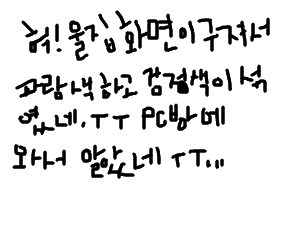 헉! 울집 화면이 구져서
파랑색하고 검정색이 섞
였네.ㅜㅜ PC방에
와서 알았네 ㅜㅜ...